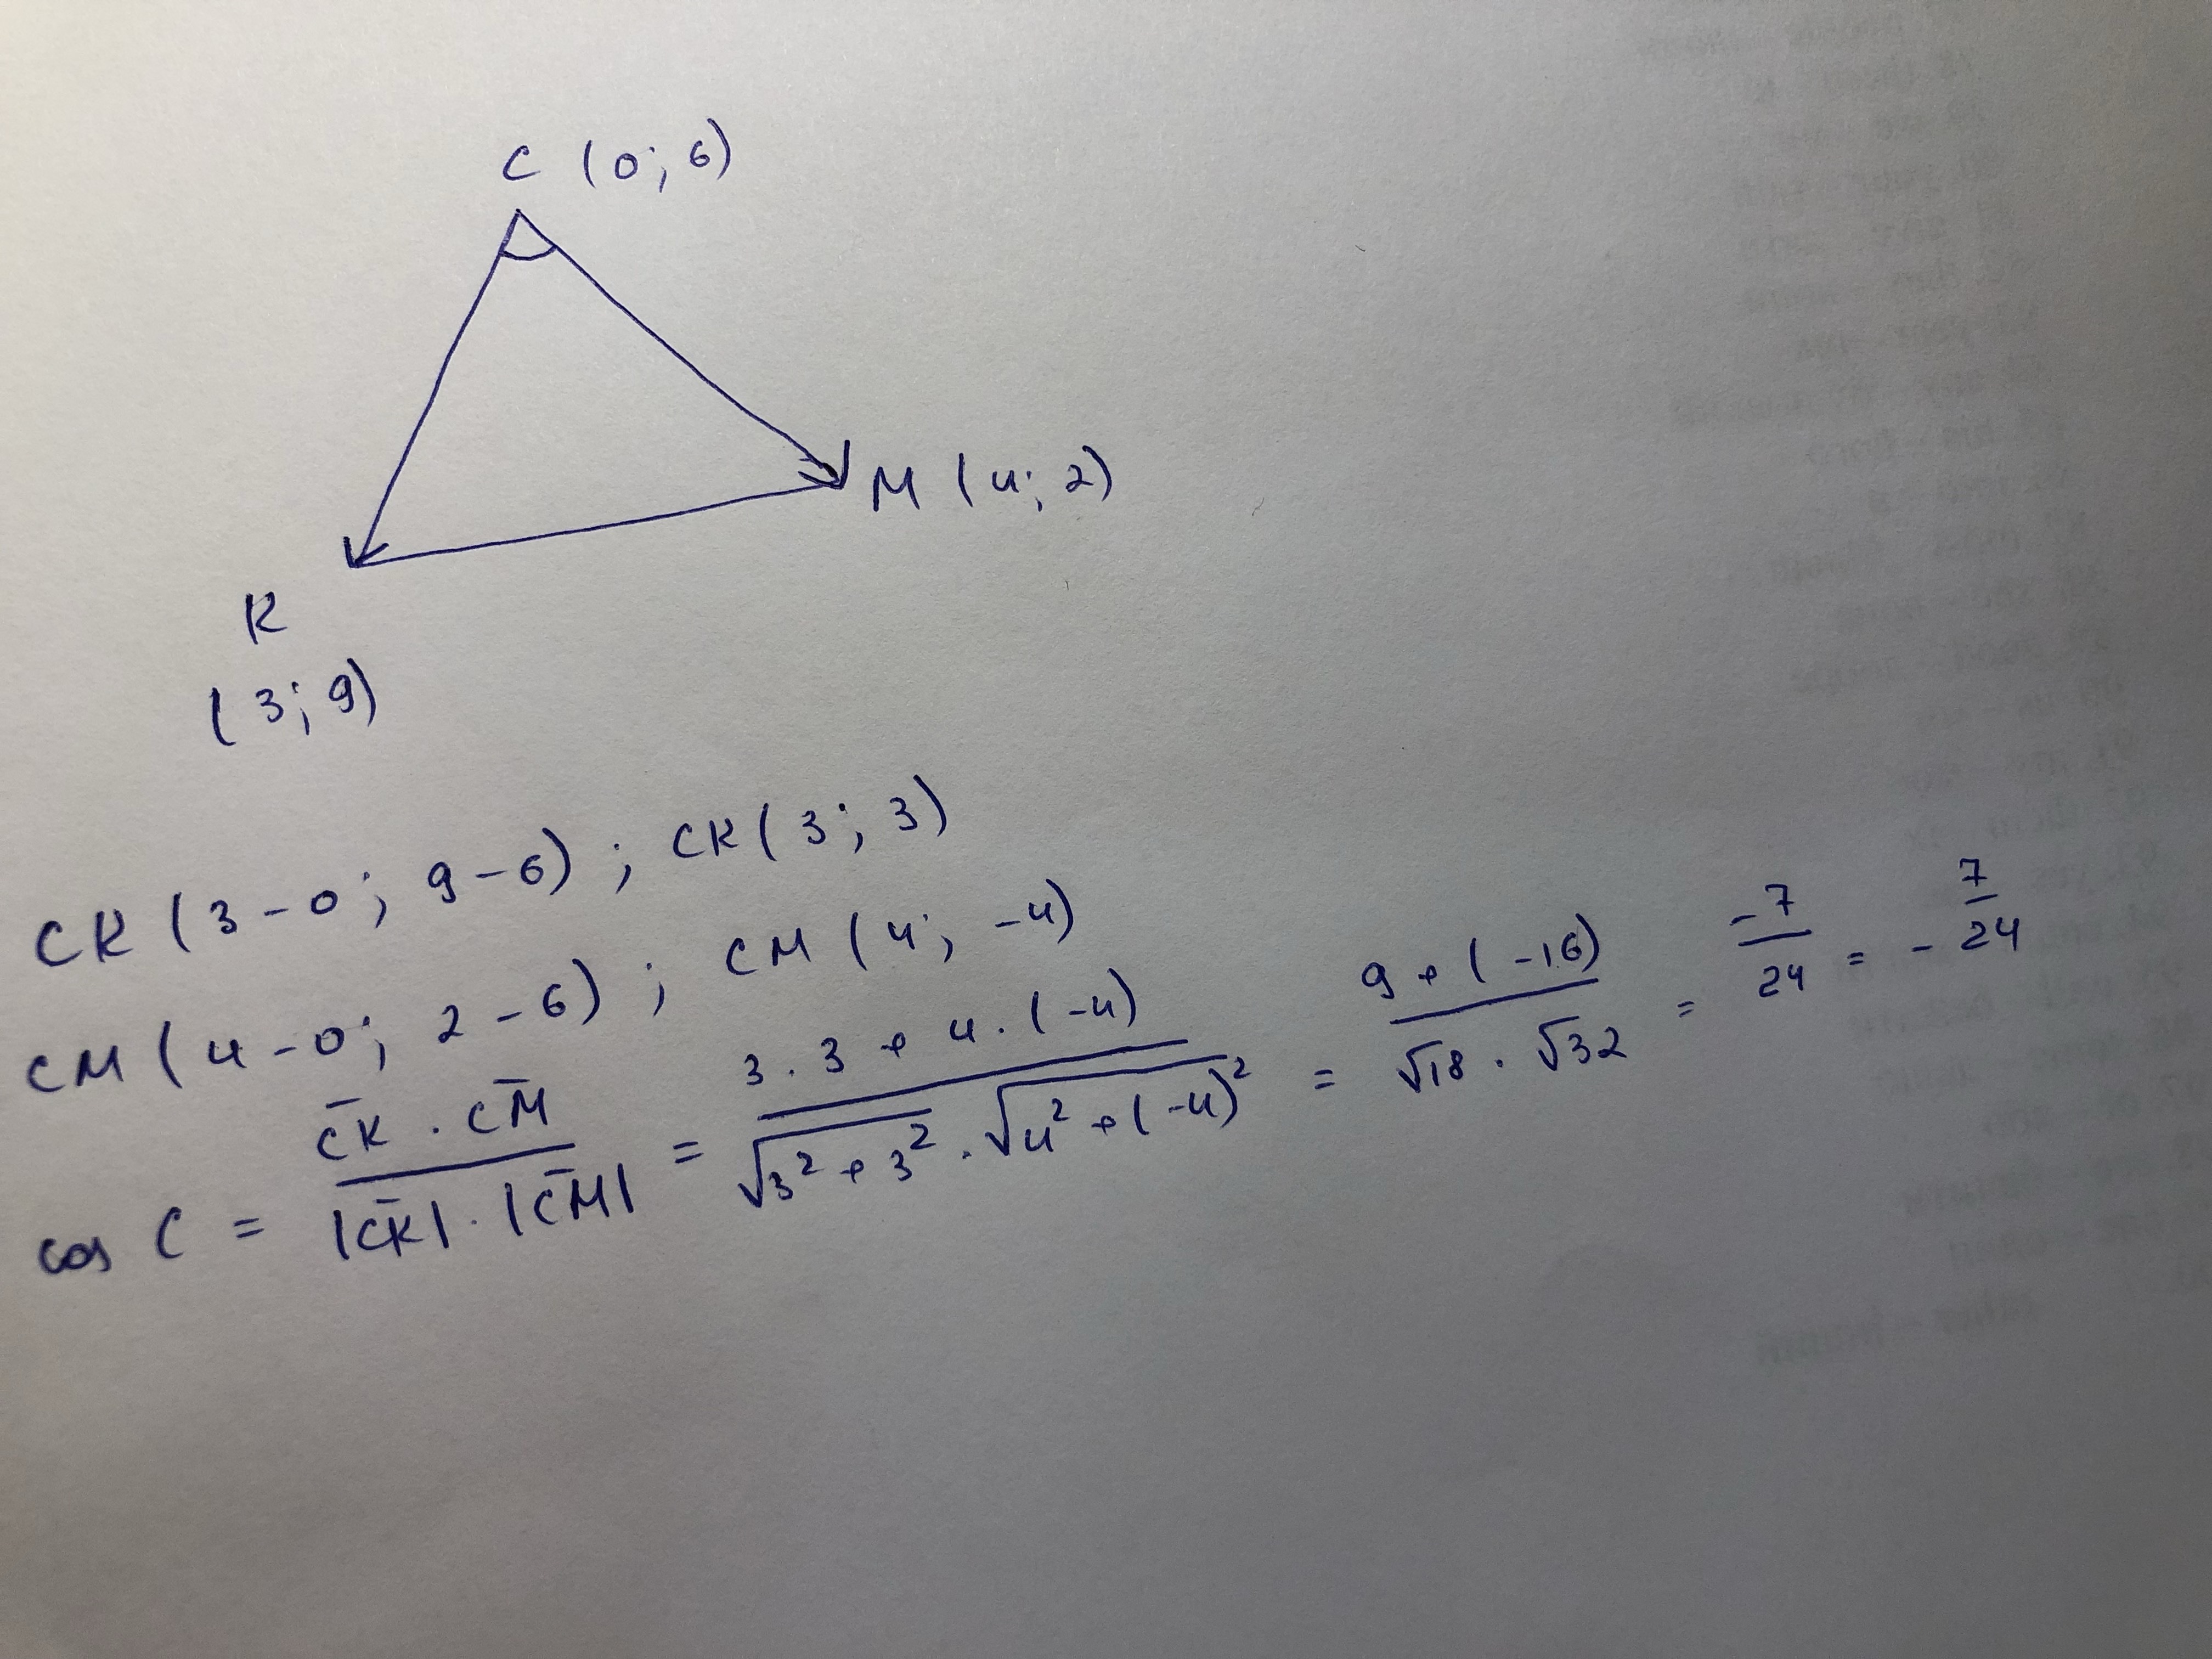 C (0; 6)
M (4; 2)
K
(3; 9)
CK (3-0; 9-6); CK (3; 3)
CM (4-0; 2-6); CM (4; -4)
cos C = C̅K̅ · C̅M̅ / |C̅K̅| · |C̅M̅| = 3·3 + 4·(-4) / √3² + 3² · √4² + (-4)² = 9 + (-16) / √18 · √32 = -7/24 = - 7/24